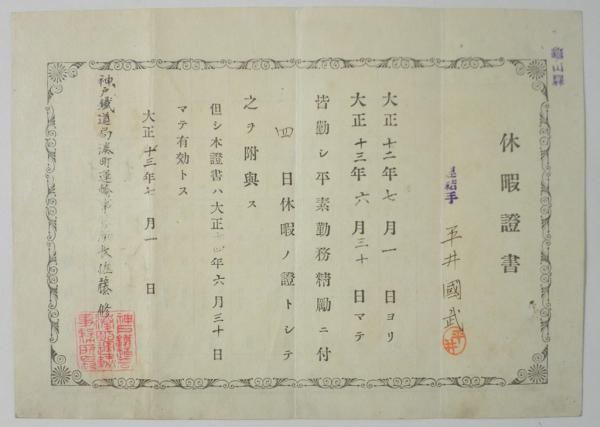 龜山驛
休暇證書
連結手
平井國武
平井
大正十二年七月一日ヨリ
大正十三年六月三十日マテ
皆勤シ平素勤務精勵ニ付
四日休暇ノ證トシテ
之ヲ附與ス
但シ本證書ハ大正十四年六月三十日
マテ有効トス
大正十三年七月一日
神戸鐵道局湊町運輸事務所長佐藤修